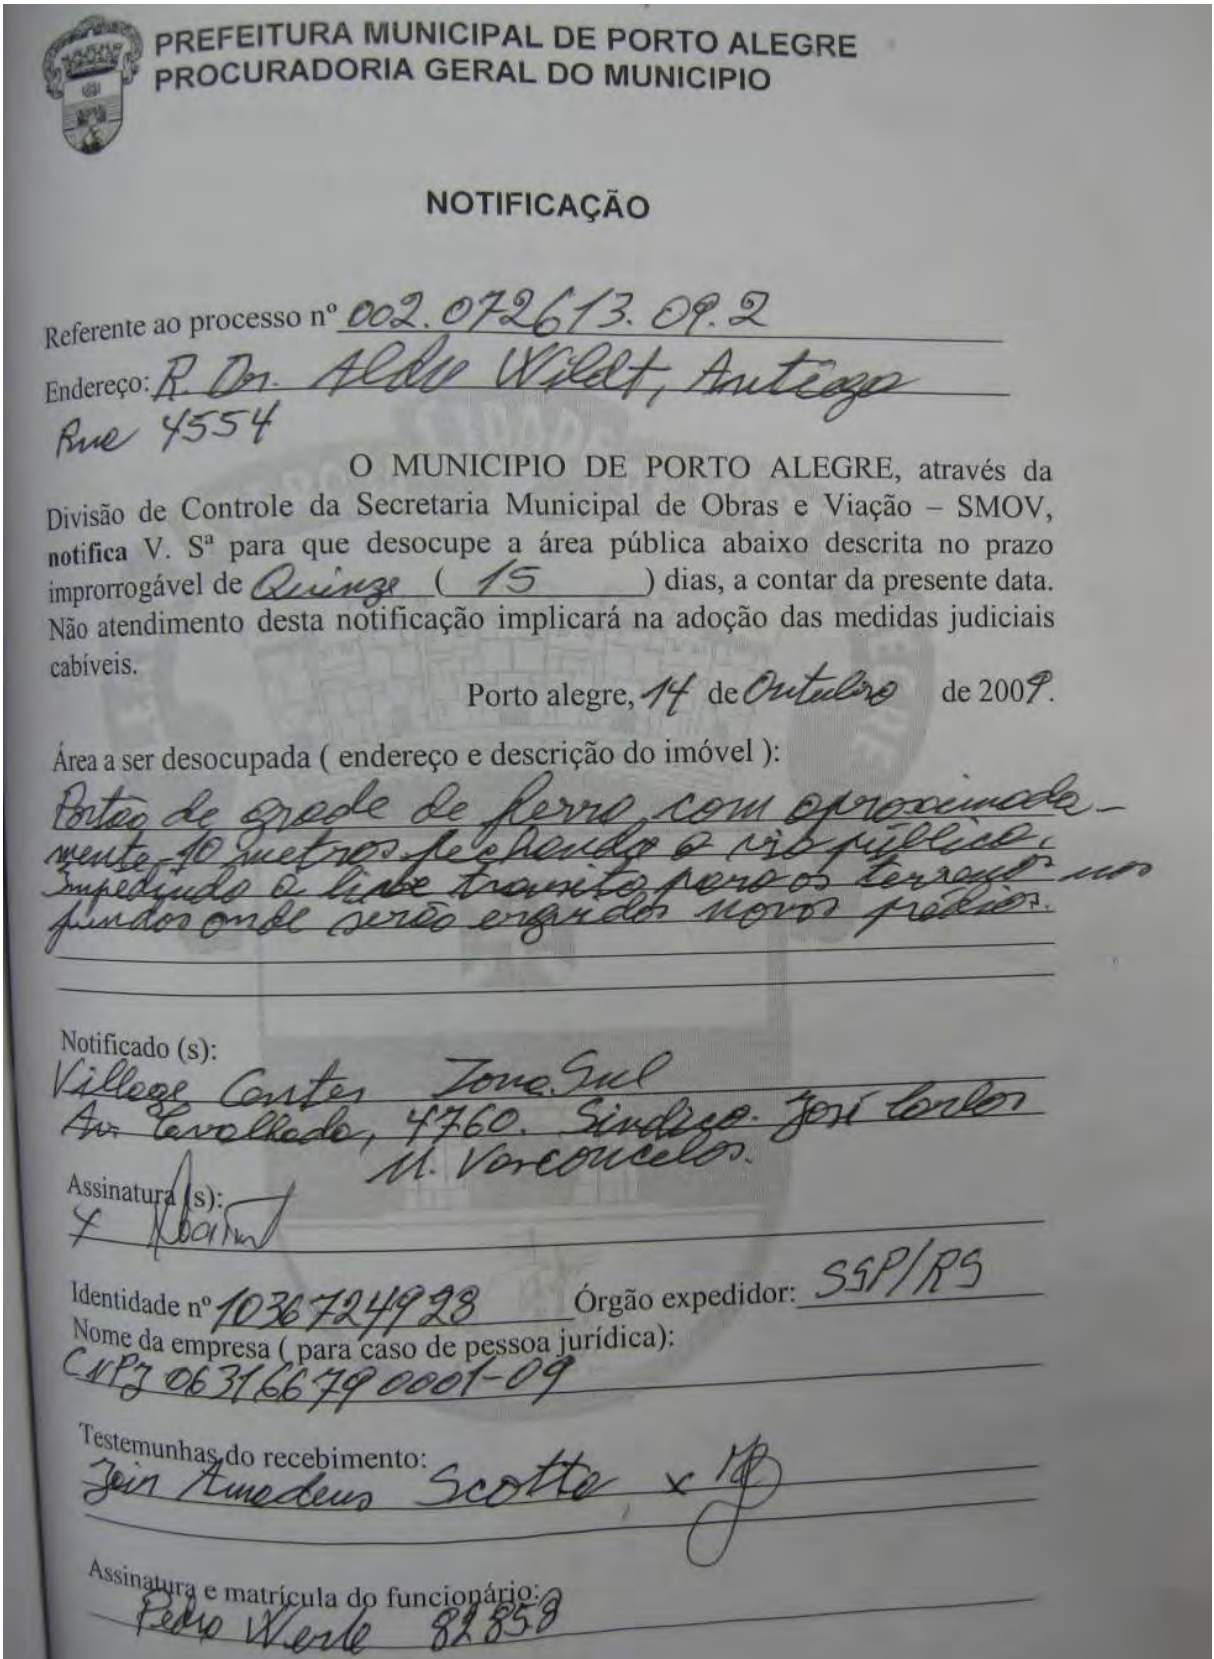 PREFEITURA MUNICIPAL DE PORTO ALEGRE
PROCURADORIA GERAL DO MUNICIPIO
NOTIFICAÇÃO
Referente ao processo nº 002.072613.09.2
Endereço: R. Dr. Aldo Wildt, Antiga
Rua 4554
O MUNICIPIO DE PORTO ALEGRE, através da
Divisão de Controle da Secretaria Municipal de Obras e Viação – SMOV,
notifica V. Sª para que desocupe a área pública abaixo descrita no prazo
improrrogável de Quinze ( 15 ) dias, a contar da presente data.
Não atendimento desta notificação implicará na adoção das medidas judiciais
cabíveis.
Porto alegre, 14 de Outubro de 2009.
Área a ser desocupada ( endereço e descrição do imóvel ):
Portão de grade de ferro, com aproximada-
mente 10 metros fechando a via pública,
Impedindo o livre transito para os terrenos nos
fundos onde serão erguidos novos prédios.
Notificado (s):
Village Center Zona Sul
Av. Cavalhada, 4760. Sindico. José Carlos
M. Vasconcelos.
Assinatura (s):
x
Identidade nº 1036724928 Órgão expedidor: SSP/RS
Nome da empresa ( para caso de pessoa jurídica):
CNPJ 06316679 0001-09
Testemunhas do recebimento:
Jair Amadeus Scotta x
Assinatura e matrícula do funcionário:
Pedro Werle 82858